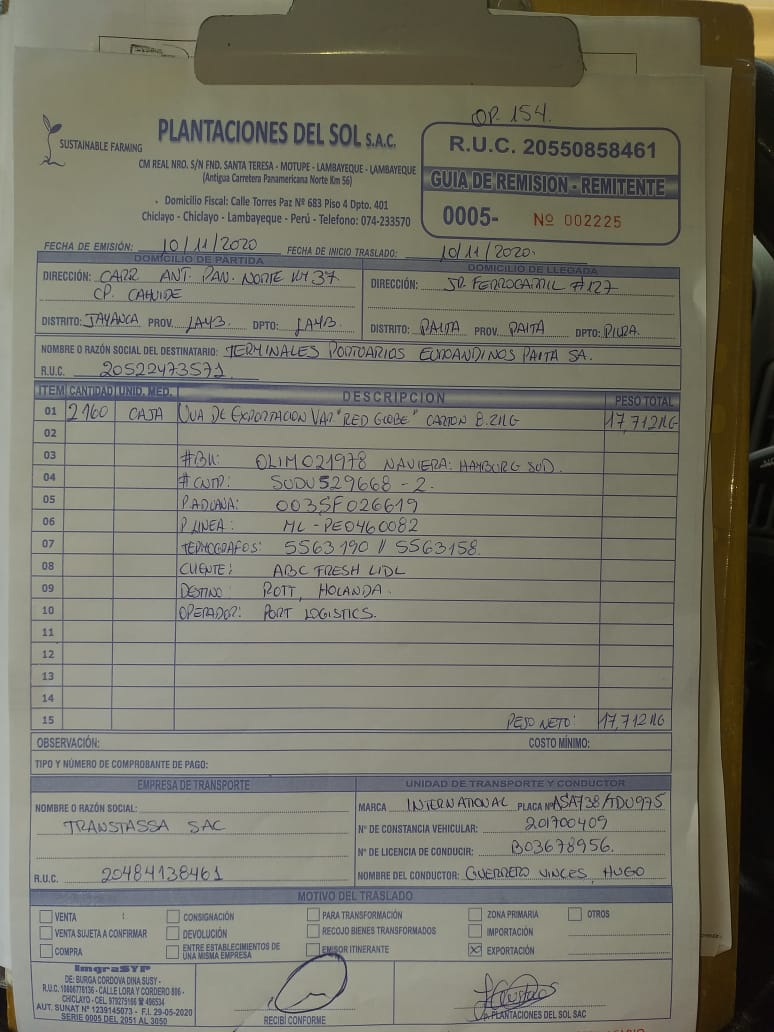 OP. 154.
SUSTAINABLE FARMING
PLANTACIONES DEL SOL S.A.C.
CM REAL NRO. S/N FND. SANTA TERESA - MOTUPE - LAMBAYEQUE - LAMBAYEQUE
(Antigua Carretera Panamericana Norte Km 56)
Domicilio Fiscal: Calle Torres Paz Nº 683 Piso 4 Dpto. 401
Chiclayo - Chiclayo - Lambayeque - Perú - Telefono: 074-233570
R.U.C. 20550858461
GUIA DE REMISION - REMITENTE
0005- Nº 002225
FECHA DE EMISIÓN: 10/11/2020 FECHA DE INICIO TRASLADO: 10/11/2020.
DOMICILIO DE PARTIDA
DIRECCIÓN: CARR. ANT. PAN. NORTE KM 37
CP. CAHUIDE
DISTRITO: JAYANCA PROV. LAMB. DPTO: LAMB.
DOMICILIO DE LLEGADA
DIRECCIÓN: JR. FERROCARRIL #127
DISTRITO: PAITA PROV. PAITA DPTO: PIURA.
NOMBRE O RAZÓN SOCIAL DEL DESTINATARIO: TERMINALES PORTUARIOS EUROANDINOS PAITA SA.
R.U.C. 20522473571
ITEM CANTIDAD UNID. MED. DESCRIPCION PESO TOTAL
01 2160 CAJA UVA DE EXPORTACION VAR "RED GLOBE" CARTON 8.2KG 17,712KG
02
03 #BK: OLIM021978 NAVIERA: HAMBURG SUD.
04 #CNTR: SUDU529668-2.
05 P. ADUANA: 0035F026619
06 P. LINEA: ML-PE0460082
07 TERMOGRAFOS: 5563190 // 5563158.
08 CLIENTE: ABC FRESH LIDL
09 DESTINO: ROTT, HOLANDA.
10 OPERADOR: PORT LOGISTICS.
11
12
13
14
15 PESO NETO: 17,712KG
OBSERVACIÓN: COSTO MÍNIMO:
TIPO Y NÚMERO DE COMPROBANTE DE PAGO:
EMPRESA DE TRANSPORTE
NOMBRE O RAZÓN SOCIAL:
TRANSTASSA SAC
R.U.C. 20484138461
UNIDAD DE TRANSPORTE Y CONDUCTOR
MARCA INTERNATIONAL PLACA Nº ASA738/TDU975
Nº DE CONSTANCIA VEHICULAR: 201700409
Nº DE LICENCIA DE CONDUCIR: B03678956.
NOMBRE DEL CONDUCTOR: GUERRERO VINCES, HUGO
MOTIVO DEL TRASLADO
VENTA CONSIGNACIÓN PARA TRANSFORMACIÓN ZONA PRIMARIA OTROS
VENTA SUJETA A CONFIRMAR DEVOLUCIÓN RECOJO BIENES TRANSFORMADOS IMPORTACIÓN
COMPRA ENTRE ESTABLECIMIENTOS DE UNA MISMA EMPRESA EMISOR ITINERANTE X EXPORTACIÓN
ImgraSYP
DE: BURGA CORDOVA DINA SUSY -
R.U.C. 10806776136 - CALLE LORA Y CORDERO 806 -
CHICLAYO - CEL. 979275166 496534
AUT. SUNAT Nº 1239145073 - F.I. 29-05-2020
SERIE 0005 DEL 2051 AL 3050
RECIBÍ CONFORME
p. PLANTACIONES DEL SOL SAC